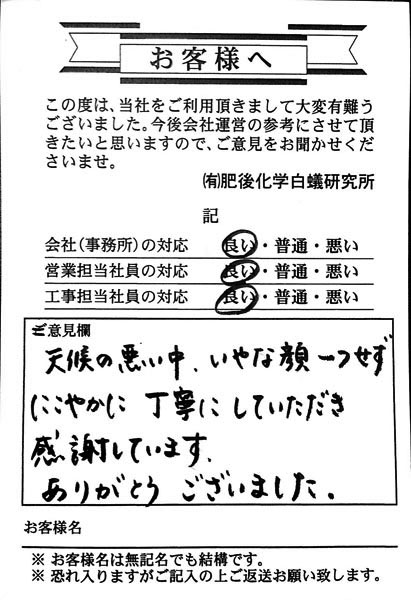 お客様へ
この度は、当社をご利用頂きまして大変有難う
ございました。今後会社運営の参考にさせて頂
きたいと思いますので、ご意見をお聞かせくだ
さいませ。
㈲肥後化学白蟻研究所
記
会社(事務所)の対応 良い・普通・悪い
営業担当社員の対応 良い・普通・悪い
工事担当社員の対応 良い・普通・悪い
ご意見欄
天候の悪い中、いやな顔一つせず
にこやかに 丁寧にしていただき
感謝しています。
ありがとう ございました。
お客様名
※ お客様名は無記名でも結構です。
※ 恐れ入りますがご記入の上ご返送お願い致します。